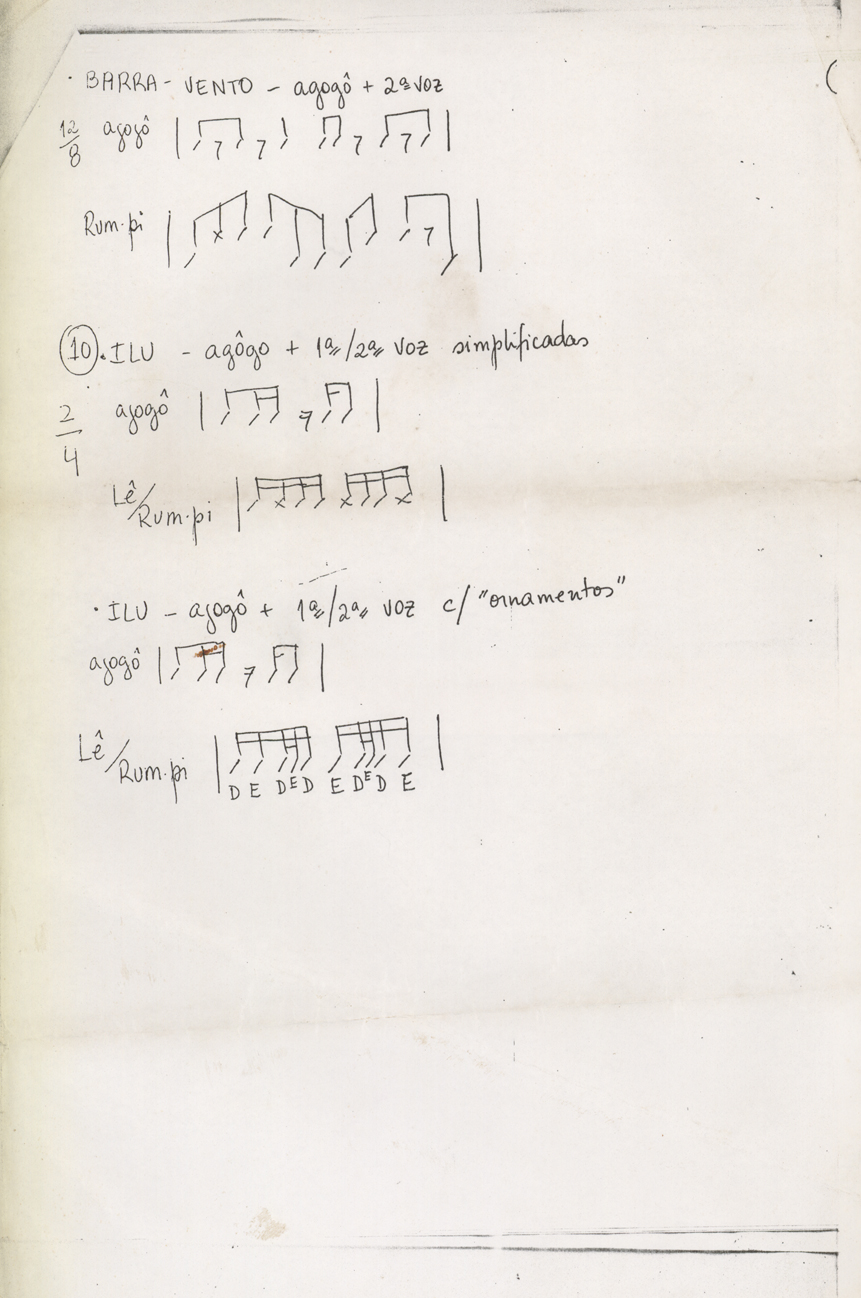 · BARRA - VENTO - agogô + 2ª voz
12/8 agogô
Rum-pi
10 . ILU - agôgo + 1ª/2ª voz simplificadas
2/4 agogô
Lê/Rum-pi
· ILU - agogô + 1ª/2ª voz c/ "ornamentos"
agogô
Lê/Rum-pi
D E D E D E D E D E